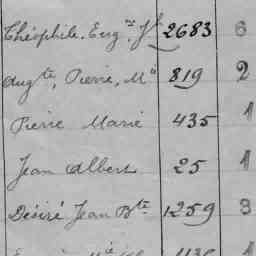 Théophile, Eug.ne Jh 2683 6
Aug.te, Pierre, M.ie 819 2
Pierre Marie 435 1
Jean Albert 25 1
Désiré Jean Bte 1259 3